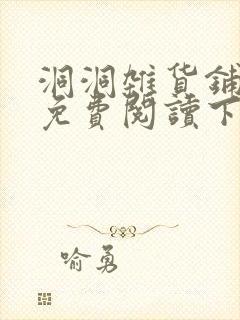 洞洞雜貨鋪
免費閱讀下
喻勇